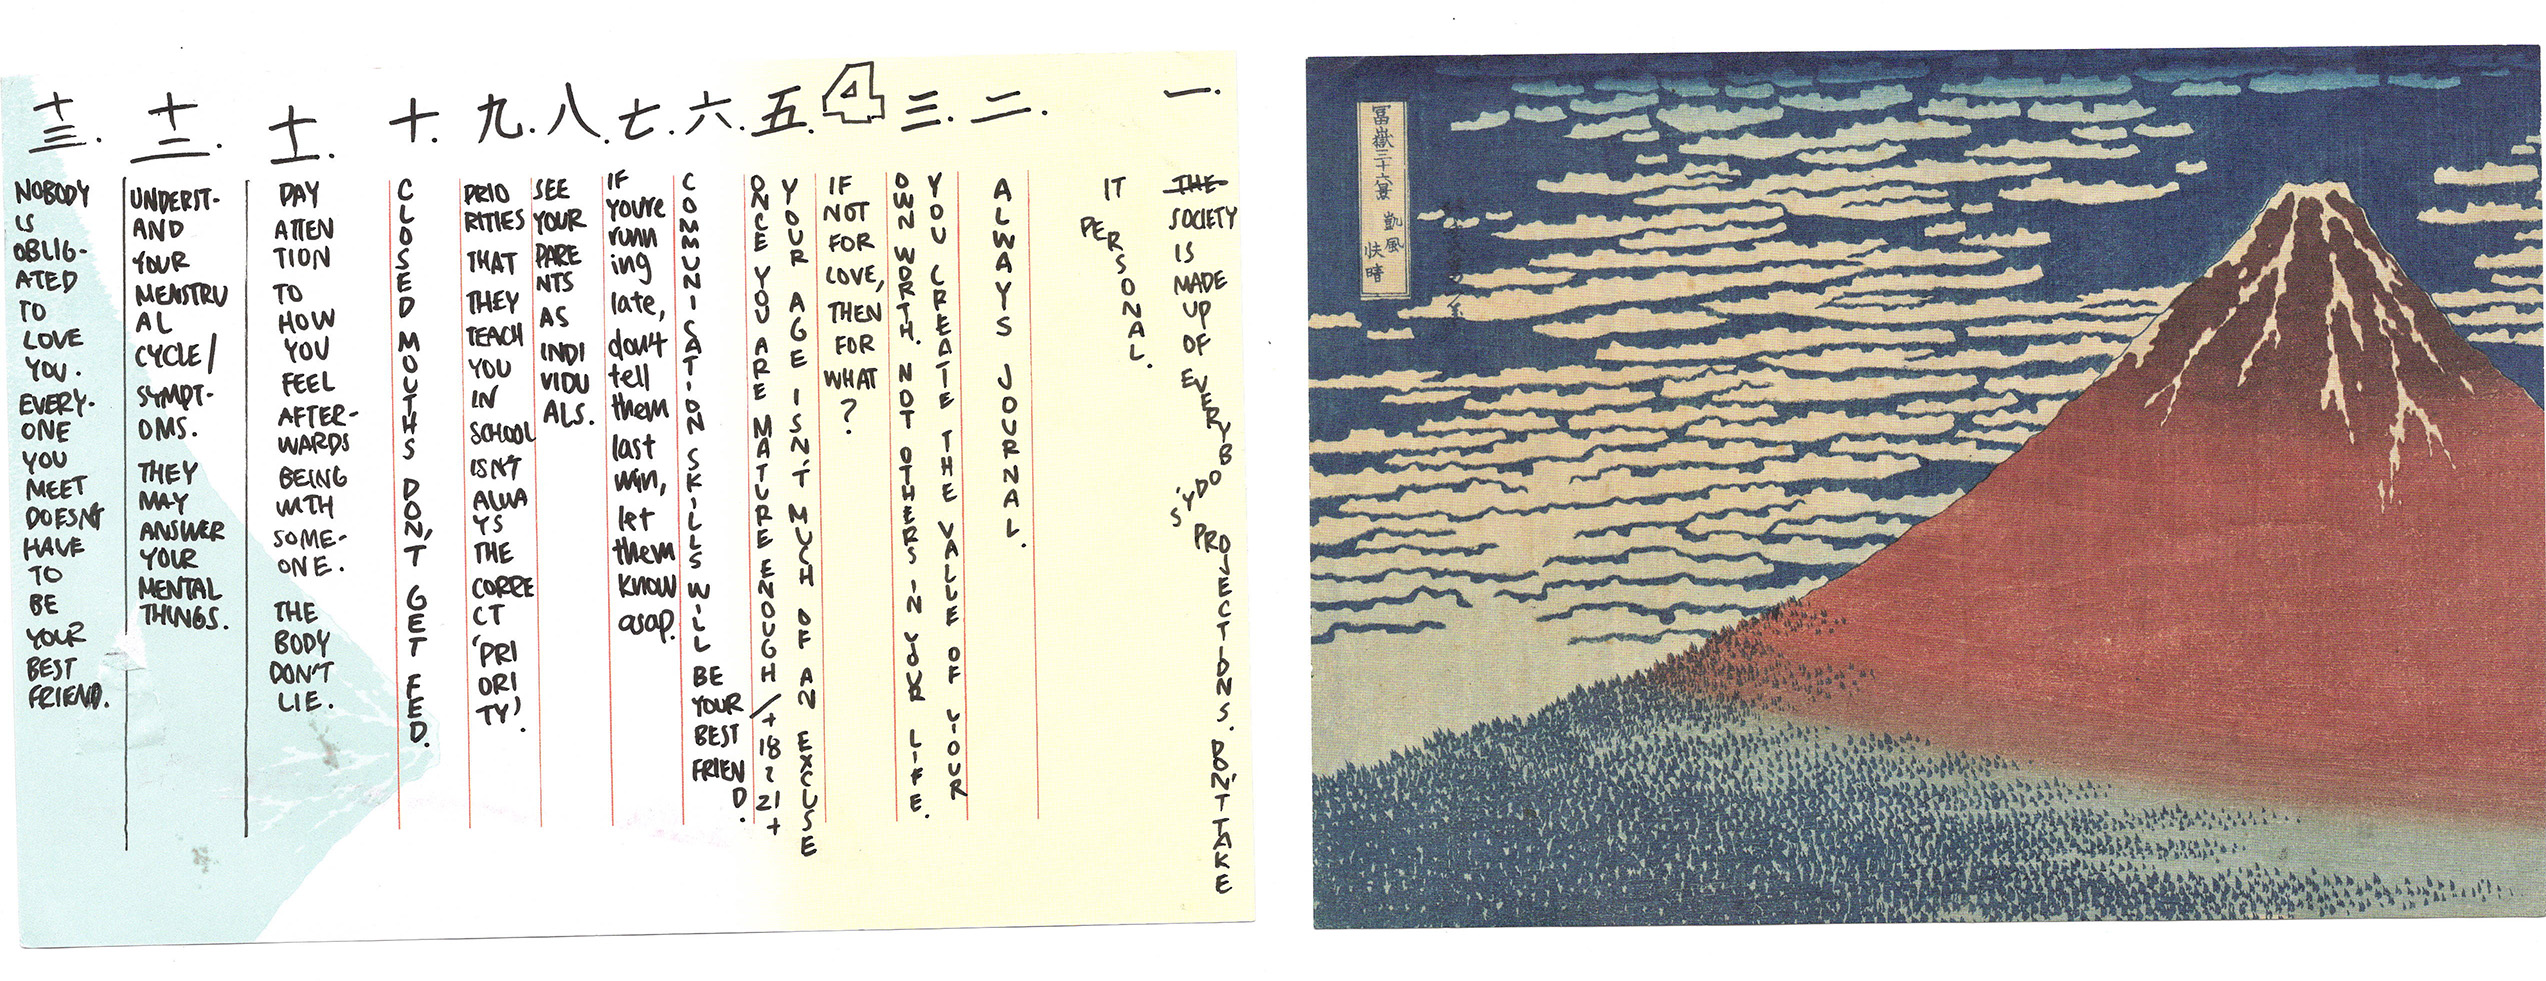 一.
THE SOCIETY IS MADE UP OF EVERYBODY'S PROJECTIONS. DON'T TAKE
IT PERSONAL.
二.
ALWAYS JOURNAL.
三.
YOU CREATE THE VALUE OF YOUR
OWN WORTH. NOT OTHERS IN YOUR LIFE.
4
IF NOT FOR LOVE, THEN FOR WHAT?
五.
YOUR AGE ISN'T MUCH OF AN EXCUSE
ONCE YOU ARE MATURE ENOUGH / +18? 21+
六.
COMMUNISATION SKILLS WILL BE YOUR BEST FRIEND.
七.
IF YOU'RE runn ing late, don't tell them last min, let them know asap.
八.
SEE YOUR PARE NTS AS INDI VIDU ALS.
九.
PRIO RITIES THAT THEY TEACH YOU IN SCHOOL ISN'T ALWA YS THE CORRE CT 'PRI ORI TY'.
十.
CLOSED MOUTHS DON'T GET FED.
十一.
PAY ATTEN TION TO HOW YOU FEEL AFTER-WARDS BEING WITH SOME-ONE. THE BODY DON'T LIE.
十二.
UNDERST-AND YOUR MENSTRU AL CYCLE/ SYMPT-OMS. THEY MAY ANSWER YOUR MENTAL THINGS.
十三.
NOBODY IS OBLIG-ATED TO LOVE YOU. EVERY-ONE YOU MEET DOESN'T HAVE TO BE YOUR BEST FRIEND.
冨嶽三十六景 凱風
快晴